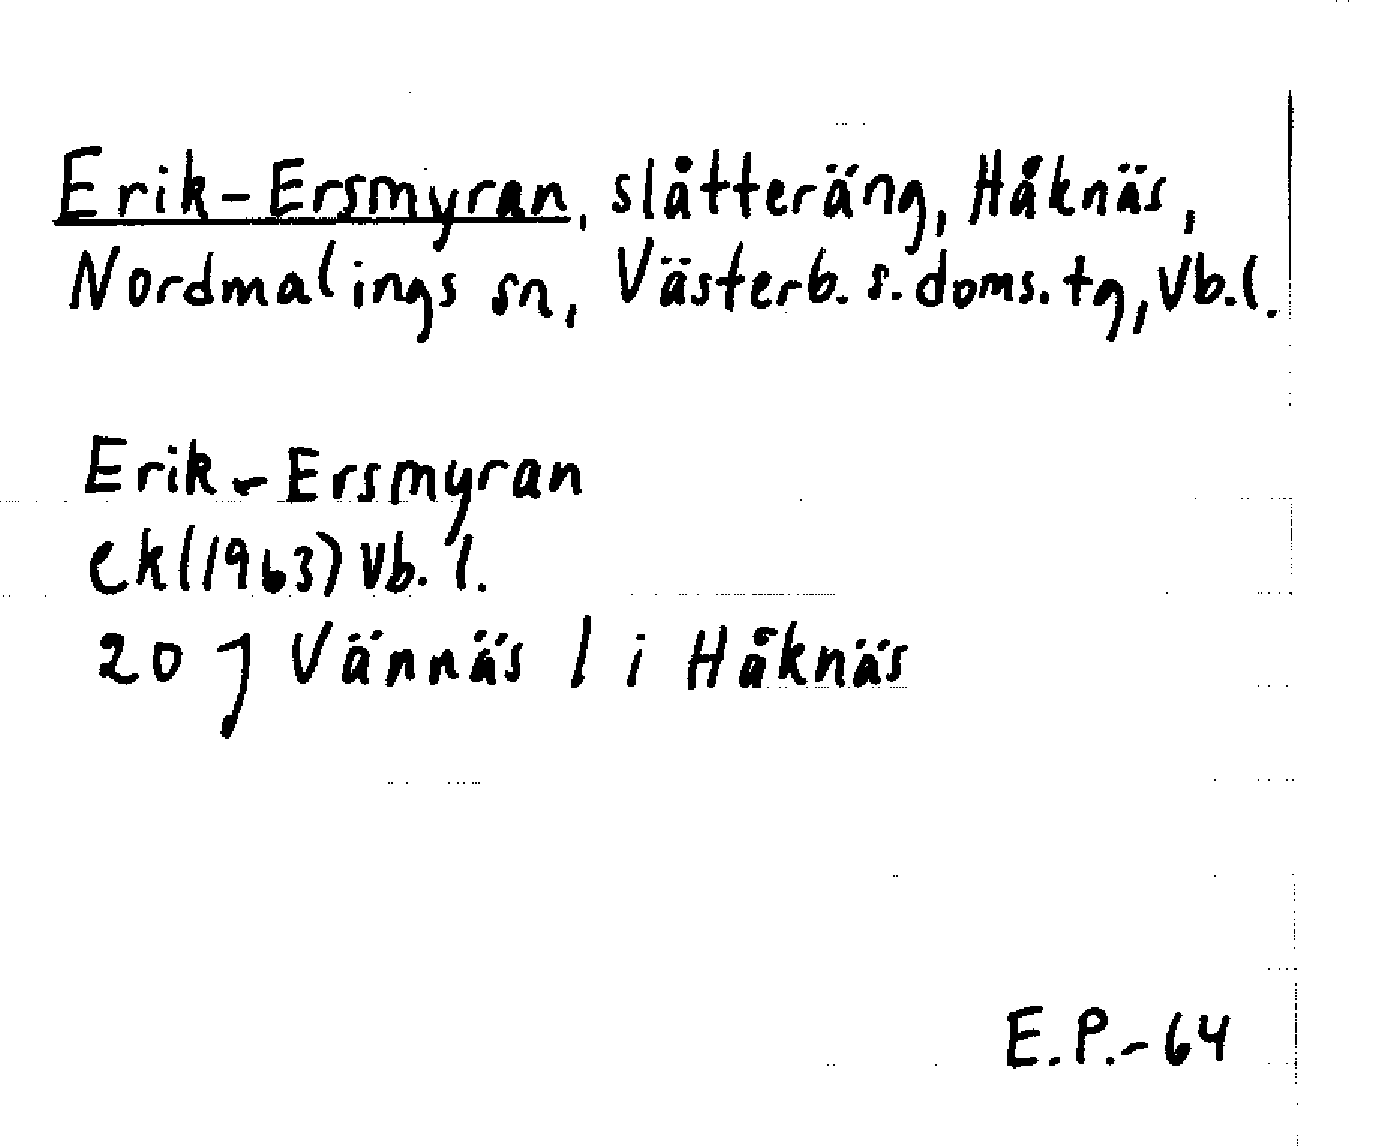 Erik-Ersmyran, slåtteräng, Håknäs,
Nordmalings sn, Västerb. s. doms. tg, Vb. l.
Erik-Ersmyran
ek (1963) Vb. l.
20 J Vännäs l i Håknäs
E.P.-64